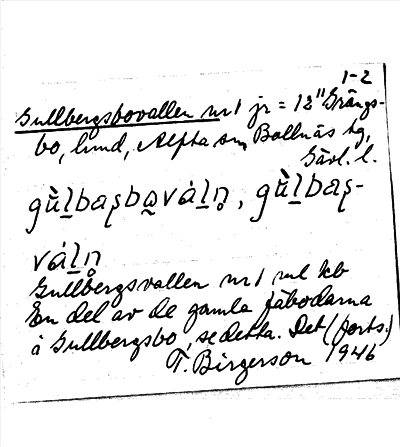 1-2
Gullbergsbovallen nr 1 jr = 12" Grängs-
bo, hmd, Alfta sn, Bollnäs tg,
Gävl. l.
gù̀lbaʂbo̰váln̥, gù̀lbaʂ-
váln̥
Gullbergsvallen nr 1 ml kb
En del av de gamla fäbodarna
å Gullbergsbo, se detta. Det (forts.)
T. Birgerson 1946